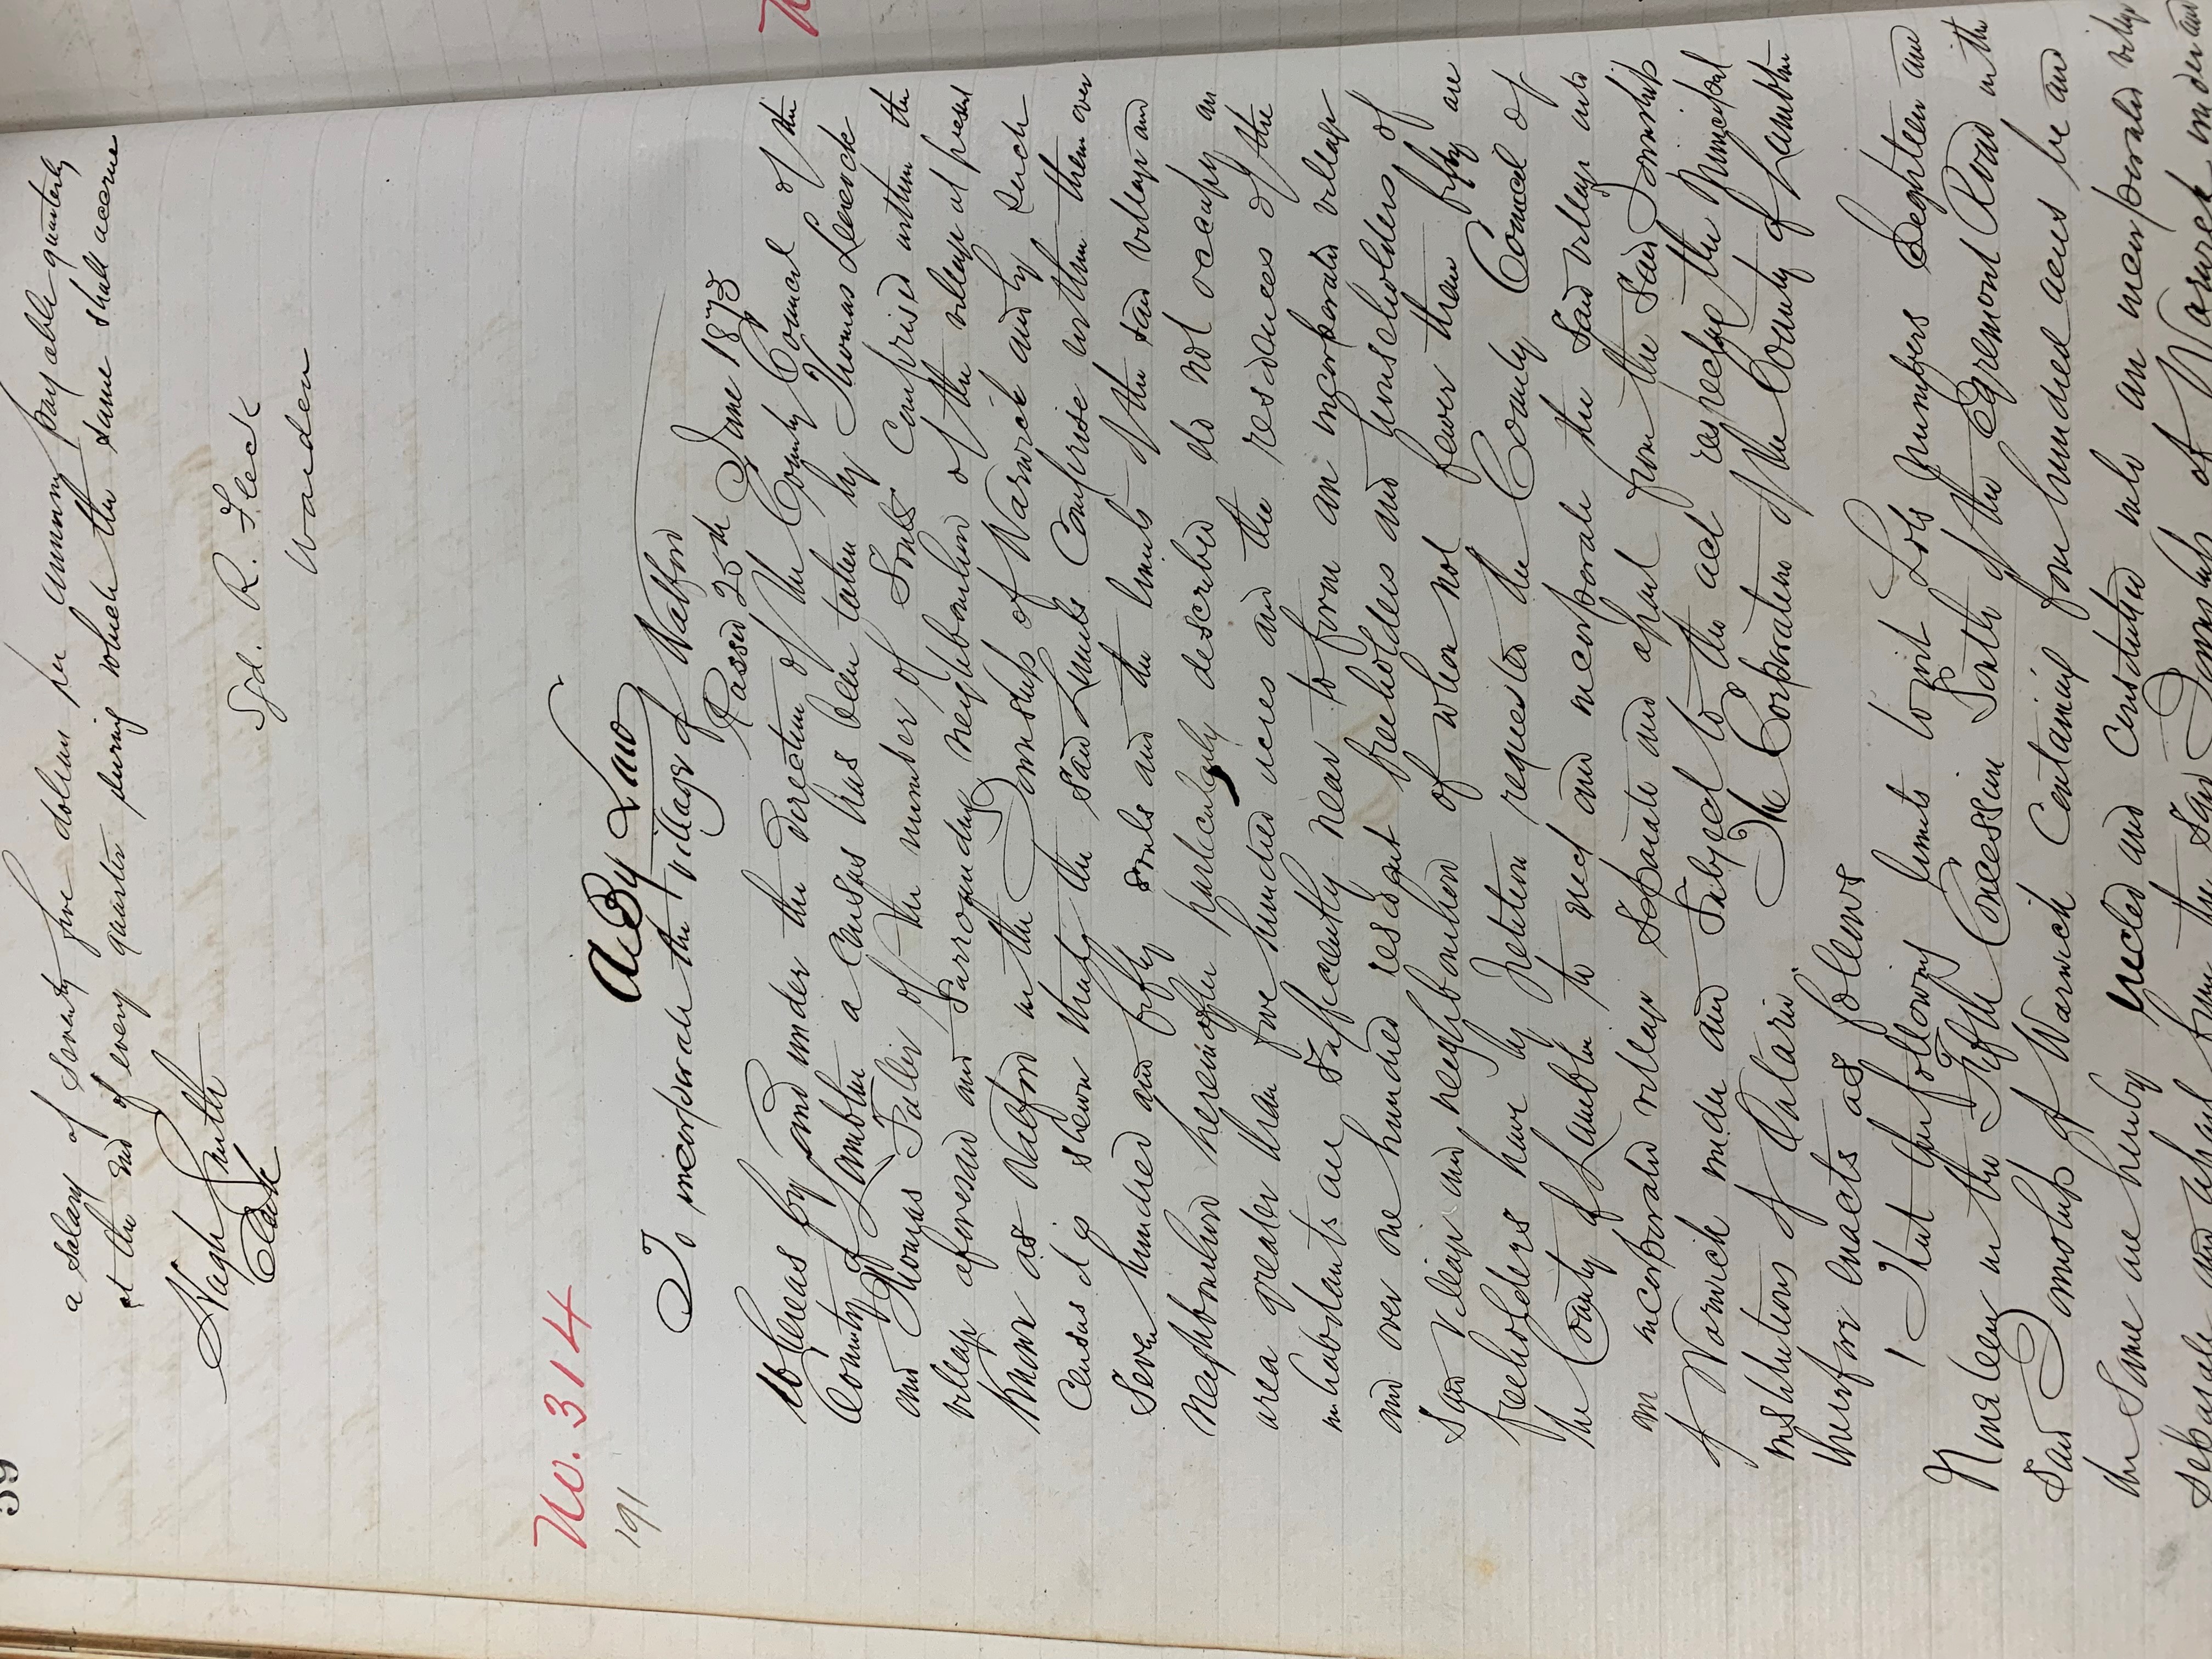 59
a salary of seventy five dollars per annum payable quarterly
at the end of every quarter during which the same shall accrue
Hugh Smith
Clerk
Sgd. R. Fleck
Warden
No. 314
191
A By Law
To incorporate the village of Watford
Passed 25th June 1873
Whereas by and under the direction of the County Council of the
County of Lambton a census has been taken by Thomas Leacock
and Thomas Fuller of the number of Souls comprised within the
village aforesaid and Surrounding neighbourhood of the village at present
known as Watford in the Township of Warwick and by such
census it is shewn that the said Limits Comprise within them over
Seven hundred and fifty souls and the limits of the said village and
neighbourhood hereinafter particularly described do not occupy an
area greater than five hundred acres and the residences of the
inhabitants are sufficiently near to form an incorporated village
and over one hundred resident freeholders and householders of
said village and neighbourhood of whom not fewer than fifty are
freeholders have by petition requested the County Council of
the County of Lambton to erect and incorporate the said village into
an incorporated village separate and apart from the said Township
of Warwick under and Subject to the act respecting the Municipal
institutions of Ontario. The Corporation of the County of Lambton
therefore enacts as follows
1 That the following limits to wit Lots numbers Eighteen and
Nineteen in the Fifth Concession South of the Egremont Road in the
said Township of Warwick Containing four hundred acres be and
the same are hereby erected and constituted into an incorporated village
separate and apart from the said Township of Warwick under and